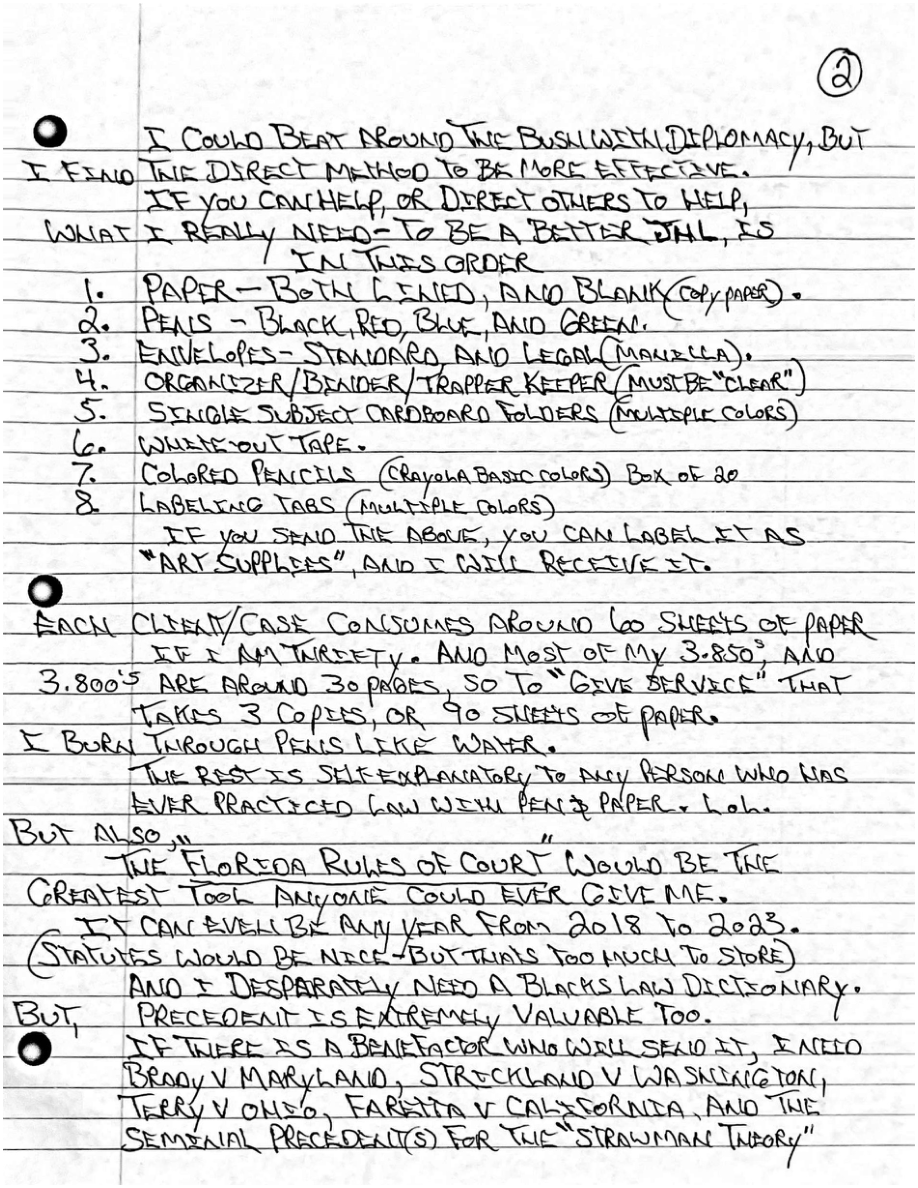 2
I COULD BEAT AROUND THE BUSH WITH DIPLOMACY, BUT
I FIND THE DIRECT METHOD TO BE MORE EFFECTIVE.
IF YOU CAN HELP, OR DIRECT OTHERS TO HELP,
WHAT I REALLY NEED - TO BE A BETTER JHL, IS
IN THIS ORDER
1. PAPER - BOTH LINED, AND BLANK (COPY PAPER).
2. PENS - BLACK, RED, BLUE, AND GREEN.
3. ENVELOPES - STANDARD, AND LEGAL (MANILLA).
4. ORGANIZER/BINDER/TRAPPER KEEPER (MUST BE "CLEAR")
5. SINGLE SUBJECT CARDBOARD FOLDERS (MULTIPLE COLORS)
6. WHITE-OUT TAPE.
7. COLORED PENCILS (CRAYOLA BASIC COLORS) BOX OF 20
8. LABELING TABS (MULTIPLE COLORS)
IF YOU SEND THE ABOVE, YOU CAN LABEL IT AS
"ART SUPPLIES", AND I WILL RECEIVE IT.
EACH CLIENT/CASE CONSUMES AROUND 60 SHEETS OF PAPER
IF I AM THRIFTY. AND MOST OF MY 3.850's, AND
3.800's ARE AROUND 30 PAGES, SO TO "GIVE SERVICE" THAT
TAKES 3 COPIES, OR 90 SHEETS OF PAPER.
I BURN THROUGH PENS LIKE WATER.
THE REST IS SELF-EXPLANATORY TO ANY PERSON WHO HAS
EVER PRACTICED LAW WITH PEN & PAPER. LOL.
BUT ALSO,
THE "FLORIDA RULES OF COURT" WOULD BE THE
GREATEST TOOL ANYONE COULD EVER GIVE ME.
IT CAN EVEN BE ANY YEAR FROM 2018 TO 2023.
(STATUTES WOULD BE NICE - BUT THATS TOO MUCH TO STORE)
AND I DESPARATELY NEED A BLACKS LAW DICTIONARY.
BUT, PRECEDENT IS EXTREMELY VALUABLE TOO.
IF THERE IS A BENEFACTOR WHO WILL SEND IT, I NEED
BRADY V MARYLAND, STRICKLAND V WASHINGTON,
TERRY V OHIO, FARETTA V CALIFORNIA, AND THE
SEMINAL PRECEDENT(S) FOR THE "STRAWMAN THEORY"